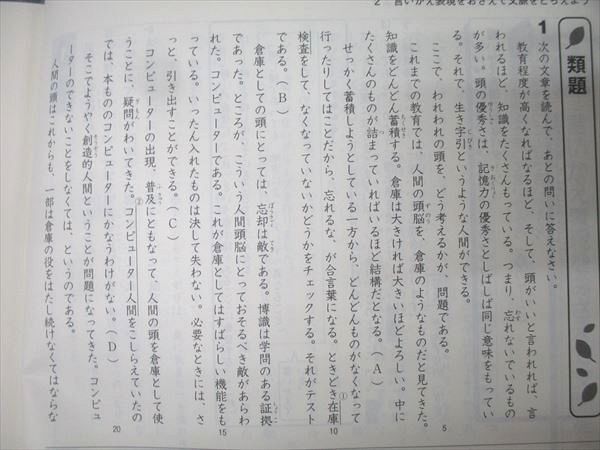 2 言いかえ表現をおさえて文脈をとらえよう
類題
1 次の文章を読んで、あとの問いに答えなさい。
教育程度が高くなればなるほど、そして、頭がいいと言われれば、言
われるほど、知識をたくさんもっている。つまり、忘れないでいるもの
が多い。頭の優秀さは、記憶力の優秀さとしばしば同じ意味をもってい
る。それで、生き字引というような人間ができる。
ここで、われわれの頭を、どう考えるかが、問題である。
これまでの教育では、人間の頭脳を、倉庫のようなものだと見てきた。
知識をどんどん蓄積する。倉庫は大きければ大きいほどよろしい。中に
たくさんのものが詰まっていればいるほど結構だとなる。(A)
せっかく蓄積しようとしている一方から、どんどんものがなくなって
行ったりしてはことだから、忘れるな、が合言葉になる。ときどき在庫
検査をして、なくなっていないかどうかをチェックする。それがテスト
である。(B)
倉庫としての頭にとっては、忘却は敵である。博識は学問のある証拠
であった。ところが、こういう人間頭脳にとっておそるべき敵があらわ
れた。コンピューターである。これが倉庫としてはすばらしい機能をも
っている。いったん入れたものは決して失わない。必要なときには、さ
っと、引き出すことができる。(C)
コンピューターの出現、普及にともなって、人間の頭を倉庫として使
うことに、疑問がわいてきた。②コンピューター人間をこしらえていたの
では、本もののコンピューターにかなうわけがない。(D)
そこでようやく創造的人間ということが問題になってきた。コンピュ
ーターのできないことをしなくては、というのである。
人間の頭はこれからも、一部は倉庫の役をはたし続けなくてはならな